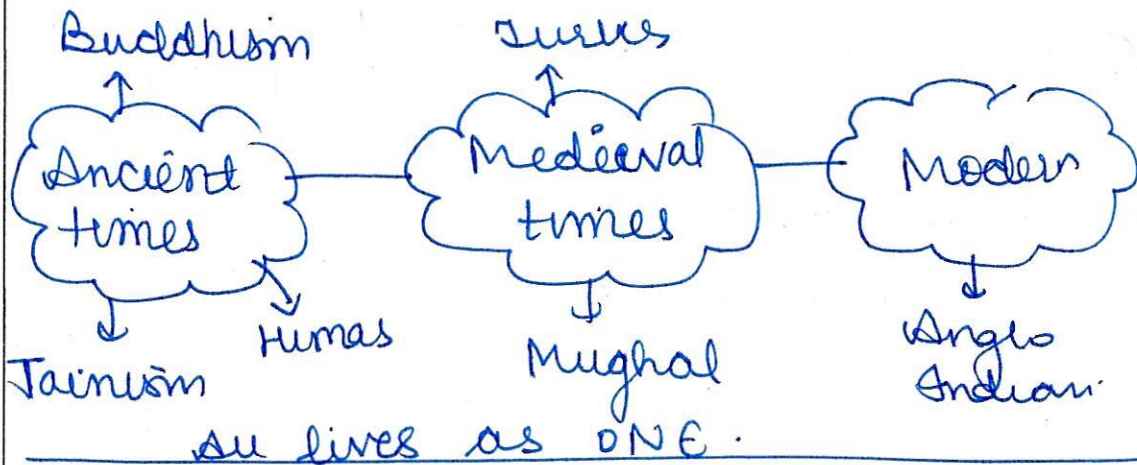 Buddhism
Turks
Ancient
times
Mediaeval
times
Modern
Jainism
Hunas
Mughal
Anglo
Indian.
All lives as ONE.